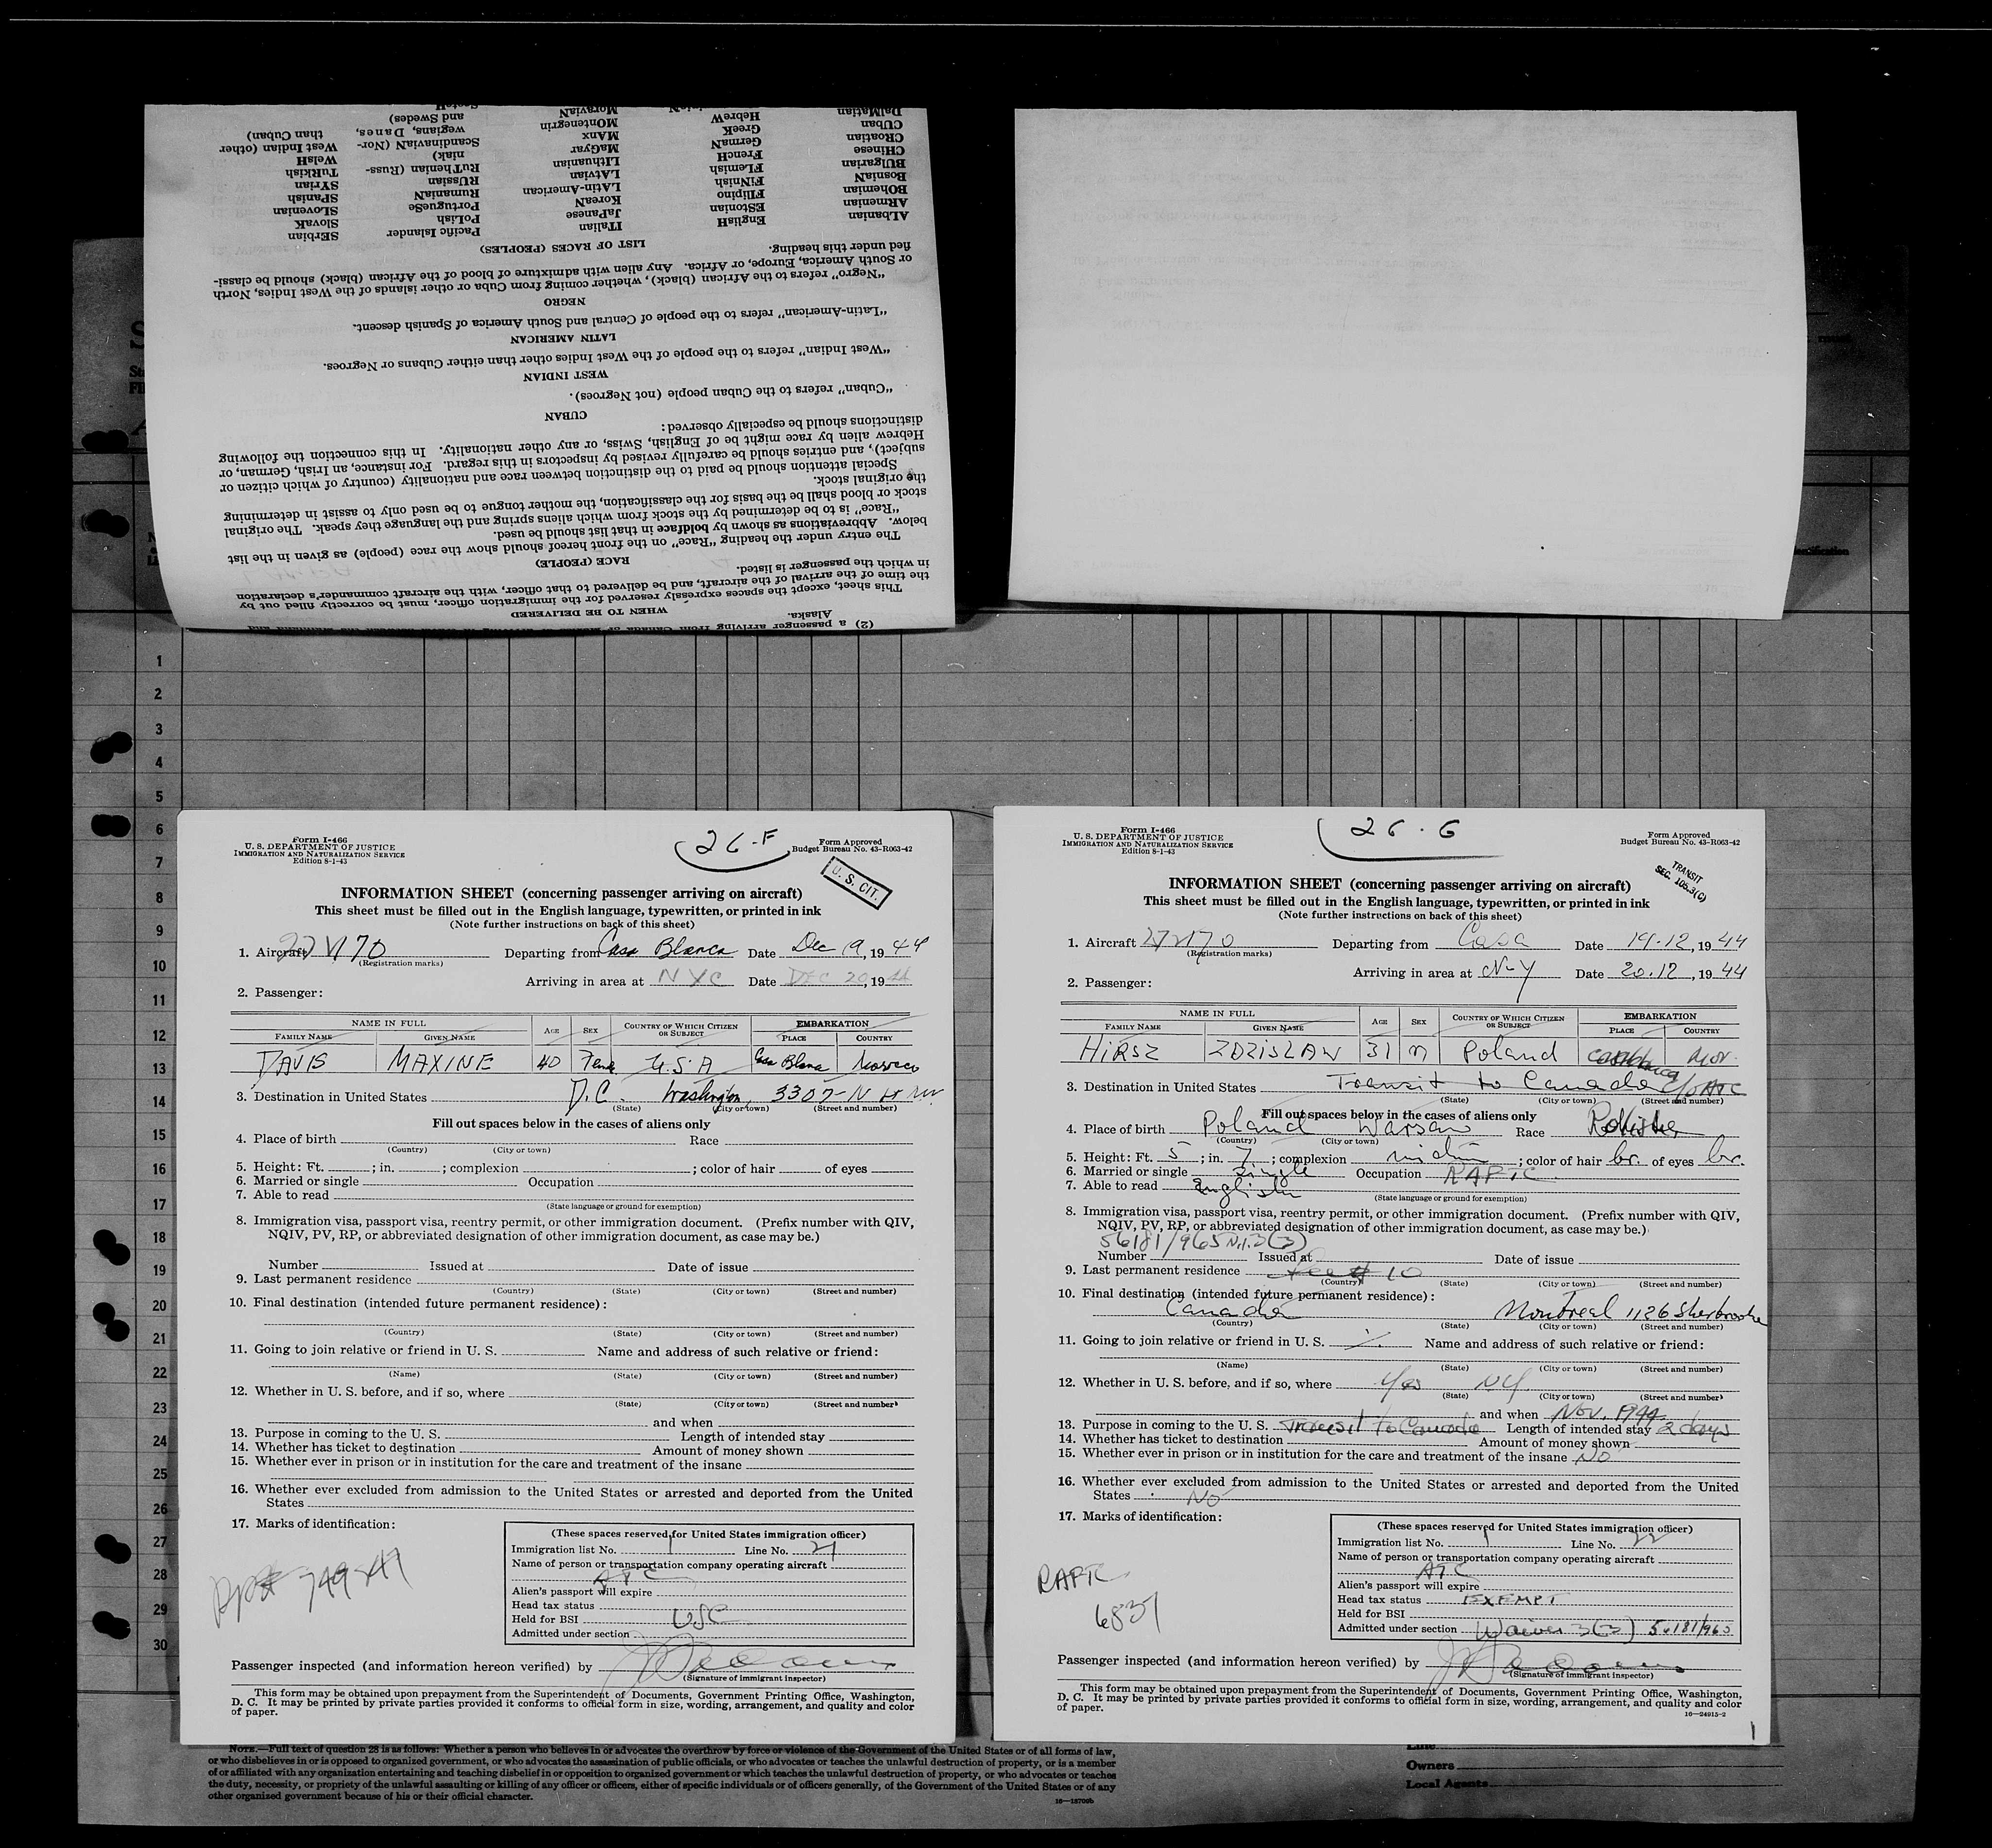 (2) a passenger arriving from
Alaska.
WHEN TO BE DELIVERED
This sheet, except the spaces expressly reserved for the immigration officer, must be correctly filled out by
the time of the arrival of the aircraft, and be delivered to that officer, with the aircraft commander's declaration
in which the passenger is listed.
RACE (PEOPLE)
The entry under the heading "Race" on the front hereof should show the race (people) as given in the list
below. Abbreviations as shown by boldface in that list should be used.
"Race" is to be determined by the stock from which aliens spring and the language they speak. The original
stock or blood shall be the basis for the classification, the mother tongue to be used only to assist in determining
the original stock.
Special attention should be paid to the distinction between race and nationality (country of which citizen or
subject), and entries should be carefully revised by inspectors in this regard. For instance, an Irish, German, or
Hebrew alien by race might be of English, Swiss, or any other nationality. In this connection the following
distinctions should be especially observed:
CUBAN
"Cuban" refers to the Cuban people (not Negroes).
WEST INDIAN
"West Indian" refers to the people of the West Indies other than either Cubans or Negroes.
LATIN AMERICAN
"Latin-American" refers to the people of Central and South America of Spanish descent.
NEGRO
"Negro" refers to the African (black), whether coming from Cuba or other islands of the West Indies, North
or South America, Europe, or Africa. Any alien with admixture of blood of the African (black) should be classi-
fied under this heading.
LIST OF RACES (PEOPLES)
ALbanian EngliSH ITalian Pacific Islander SErbian
ARmenian EStonian JaPanese PoLish SlovaK
BOhemian FIlipino KoreaN PortuguеSe SlOvenian
BosniaN FiNnish LATin-American RumaniaN SPanish
BUlgarian FLemish LAtvian RUssian SYrian
CHinese FrencH LIthuanian RuThenian (Russ- TuRkish
CRoatian GermaN MaGyar niak) WelsH
CUban GreeK MAnx ScandinaviaN (Nor- West Indian (other
DalMatian HebreW MOntenegrin wegians, Danes, than Cuban)
MoraviaN and Swedes)
ScotcH
1
2
3
4
5
6
7
8
9
10
11
12
13
14
15
16
17
18
19
20
21
22
23
24
25
26
27
28
29
30
Form I-466
U. S. DEPARTMENT OF JUSTICE
IMMIGRATION AND NATURALIZATION SERVICE
Edition 8-1-43
26-F
Form Approved
Budget Bureau No. 43-R063-42
U. S. CIT.
INFORMATION SHEET (concerning passenger arriving on aircraft)
This sheet must be filled out in the English language, typewritten, or printed in ink
(Note further instructions on back of this sheet)
1. Aircraft Departing from Casa Blanca Date Dec 19, 1944
(Registration marks)
Arriving in area at NYC Date DEC 20, 1944
2. Passenger:
NAME IN FULL AGE SEX COUNTRY OF WHICH CITIZEN OR SUBJECT EMBARKATION
FAMILY NAME GIVEN NAME PLACE COUNTRY
DAVIS MAXINE 40 Fem U.S.A Casa Blanca Morocco
3. Destination in United States D.C. Washington, 3307-N St NW
(State) (City or town) (Street and number)
Fill out spaces below in the cases of aliens only
4. Place of birth Race
(Country) (City or town)
5. Height: Ft. ; in. ; complexion ; color of hair of eyes
6. Married or single Occupation
7. Able to read
(State language or ground for exemption)
8. Immigration visa, passport visa, reentry permit, or other immigration document. (Prefix number with QIV,
NQIV, PV, RP, or abbreviated designation of other immigration document, as case may be.)
Number Issued at Date of issue
9. Last permanent residence
(Country) (State) (City or town) (Street and number)
10. Final destination (intended future permanent residence):
(Country) (State) (City or town) (Street and number)
11. Going to join relative or friend in U. S. Name and address of such relative or friend:
(Name) (State) (City or town) (Street and number)
12. Whether in U. S. before, and if so, where
(State) (City or town) (Street and number)
and when
13. Purpose in coming to the U. S. Length of intended stay
14. Whether has ticket to destination Amount of money shown
15. Whether ever in prison or in institution for the care and treatment of the insane
16. Whether ever excluded from admission to the United States or arrested and deported from the United
States
17. Marks of identification:
(These spaces reserved for United States immigration officer)
Immigration list No. 1 Line No. 21
Name of person or transportation company operating aircraft
ATC
Alien's passport will expire
Head tax status
Held for BSI USC
Admitted under section
Passenger inspected (and information hereon verified) by
(Signature of immigrant inspector)
This form may be obtained upon prepayment from the Superintendent of Documents, Government Printing Office, Washington,
D. C. It may be printed by private parties provided it conforms to official form in size, wording, arrangement, and quality and color
of paper.
Form I-466
U. S. DEPARTMENT OF JUSTICE
IMMIGRATION AND NATURALIZATION SERVICE
Edition 8-1-43
26-G
Form Approved
Budget Bureau No. 43-R063-42
TRANSIT
SEC. 105.3(C)
INFORMATION SHEET (concerning passenger arriving on aircraft)
This sheet must be filled out in the English language, typewritten, or printed in ink
(Note further instructions on back of this sheet)
1. Aircraft 272170 Departing from Casa Date 19.12, 1944
(Registration marks)
Arriving in area at N-Y Date 20.12, 1944
2. Passenger:
NAME IN FULL AGE SEX COUNTRY OF WHICH CITIZEN OR SUBJECT EMBARKATION
FAMILY NAME GIVEN NAME PLACE COUNTRY
HIRSZ ZDZISLAW 31 M Poland Casablanca Mor.
3. Destination in United States Transit to Canada c/o ATC
(State) (City or town) (Street and number)
Fill out spaces below in the cases of aliens only
4. Place of birth Poland Warsaw Race
(Country) (City or town)
5. Height: Ft. 5 ; in. 7 ; complexion ; color of hair br. of eyes br.
6. Married or single single Occupation RAFTC
7. Able to read English
(State language or ground for exemption)
8. Immigration visa, passport visa, reentry permit, or other immigration document. (Prefix number with QIV,
NQIV, PV, RP, or abbreviated designation of other immigration document, as case may be.)
56181/965
Number Issued at Date of issue
9. Last permanent residence # 10
(Country) (State) (City or town) (Street and number)
10. Final destination (intended future permanent residence):
Canada Montreal 1126 Sherbrooke
(Country) (State) (City or town) (Street and number)
11. Going to join relative or friend in U. S. Name and address of such relative or friend:
(Name) (State) (City or town) (Street and number)
12. Whether in U. S. before, and if so, where Yes NY
(State) (City or town) (Street and number)
and when Nov. 1944
13. Purpose in coming to the U. S. Transit to Canada Length of intended stay 2 days
14. Whether has ticket to destination Amount of money shown
15. Whether ever in prison or in institution for the care and treatment of the insane No
16. Whether ever excluded from admission to the United States or arrested and deported from the United
States No
17. Marks of identification:
RAFTC
(These spaces reserved for United States immigration officer)
Immigration list No. 1 Line No. 22
Name of person or transportation company operating aircraft
ATC
Alien's passport will expire
Head tax status EXEMPT
Held for BSI
Admitted under section Waiver 3(3) 56181/965
Passenger inspected (and information hereon verified) by
(Signature of immigrant inspector)
This form may be obtained upon prepayment from the Superintendent of Documents, Government Printing Office, Washington,
D. C. It may be printed by private parties provided it conforms to official form in size, wording, arrangement, and quality and color
of paper.
16—24915-2
NOTE.—Full text of question 28 is as follows: Whether a person who believes in or advocates the overthrow by force or violence of the Government of the United States or of all forms of law,
or who disbelieves in or is opposed to organized government, or who advocates the assassination of public officials, or who advocates or teaches the unlawful destruction of property, or is a member
of or affiliated with any organization entertaining and teaching disbelief in or opposition to organized government or which teaches the unlawful destruction of property, or who advocates or teaches
the duty, necessity, or propriety of the unlawful assaulting or killing of any officer or officers, either of specific individuals or of officers generally, of the Government of the United States or of any
other organized government because of his or their official character.
16—18700b
Owners
Local Agents